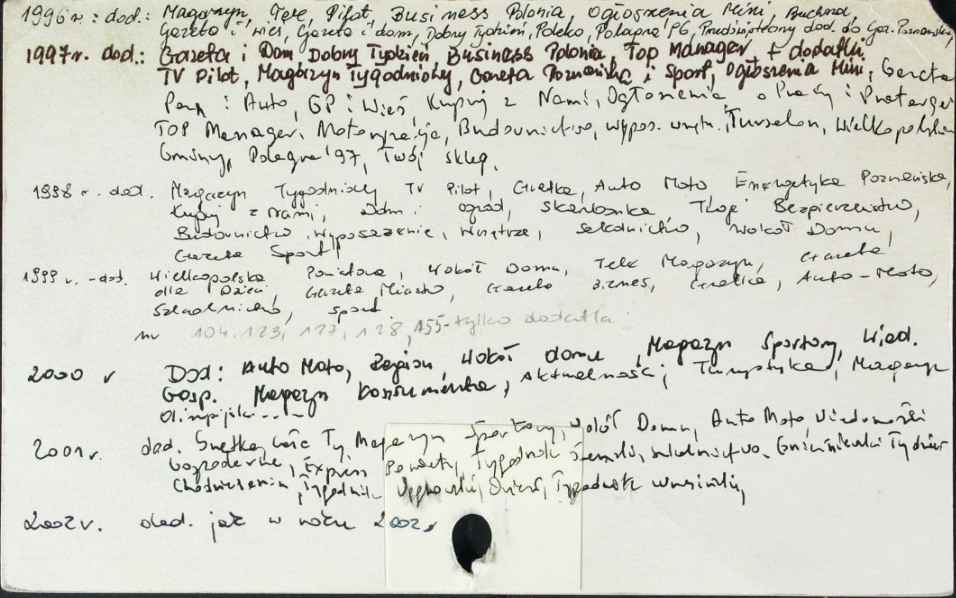 1996 r.: dod.: Magazyn, Tele, Pilot, Business Polonia, Ogłoszenia Mini
Gazeta i wieś, Gazeta i dom, Dobry Tydzień, Poleko, Polagra 96, dod. do Gaz. Poznańskiej
1997 r. dod.: Gazeta i Dom Dobry Tydzień Business Polonia, Top Manager + dodatki
TV Pilot, Magazyn Tygodniowy, Gazeta Poznańska i Sport, Ogłoszenia Mini, Gazeta
i Auto, GP i Wieś, Kupuj z Nami, Ogłoszenia o Pracy i
TOP Manager, Motoryzacja, Budownictwo, wypos. wnętr., Wielkopolskie
Gminy, Polagra '97, Twój sklep.
1998 r. dod. Magazyn Tygodniowy TV Pilot, Giełda, Auto Moto Energetyka Poznańska,
Kupuj z nami, Dom i ogród, Skarbonka Twoje Bezpieczeństwo,
Budownictwo Wyposażenie, Wnętrze, szkolnictwo, Wokół Domu,
Gazeta Sport
1999 r. - dod. Wielkopolska Powiatowa, Wokół Domu, Tele Magazyn, Gazeta
dla Dzieci, Gazeta Miasto, Gazeta Biznes, Giełda, Auto-Moto,
Szkolnictwo, Sport.
nr 104, 123, 127, 128, 155 - tylko dodatki
2000 r Dod: Auto Moto, Region, Wokół domu, Magazyn Sportowy, Wiad.
Gosp. Magazyn konsumenta, Aktualności, Turystyka, Magazyn
Olimpijski...
2001 r. dod. Magazyn Sportowy, Wokół Domu, Auto Moto, Wiadomości
Gospodarcze, Express Powiatu, Tygodnik szkolnictwo, Gnieźnieński Tydzień
Tygodnik Tygodnik
2002 r. dod. jak w roku 2002